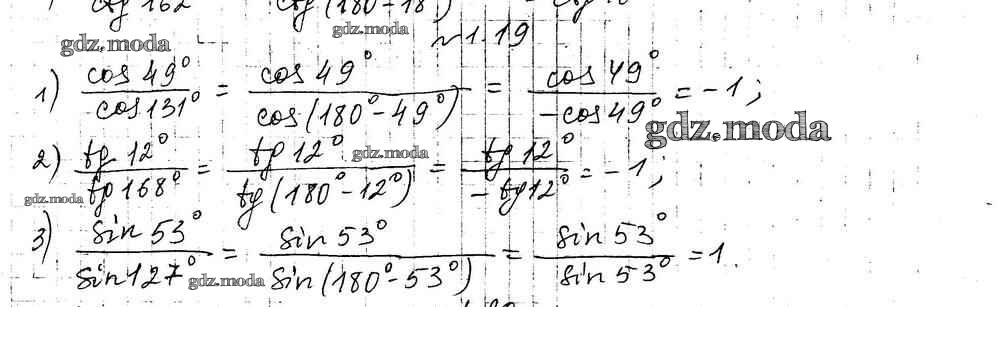 ctg 162 ctg (180 - 18°)
gdz.moda gdz.moda
№ 1.19
1) cos 49° / cos 131° = cos 49° / cos (180° - 49°) = cos 49° / -cos 49° = -1;
gdz.moda
2) tg 12° / tg 168° = tg 12° / tg (180° - 12°) = tg 12° / -tg 12° = -1;
gdz.moda gdz.moda
3) sin 53° / sin 127° = sin 53° / sin (180° - 53°) = sin 53° / sin 53° = 1.
gdz.moda gdz.moda